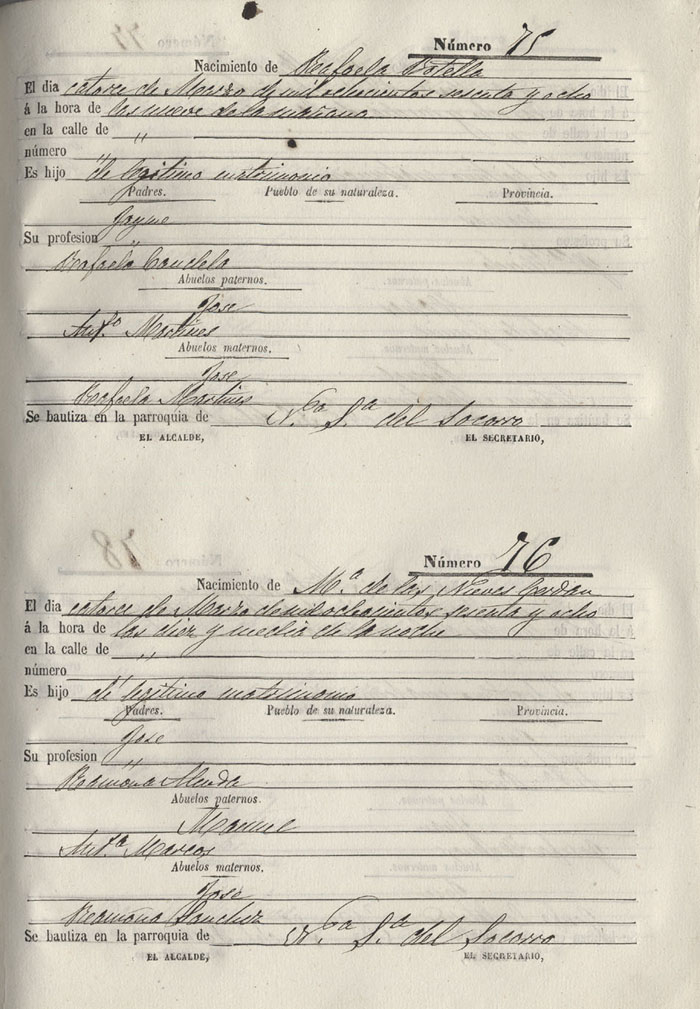 Número 75
Nacimiento de Rafaela Botella
El dia catorce de Marzo de mil ochocientos sesenta y ocho
á la hora de las nueve de la mañana
en la calle de "
número "
Es hijo de legitimo matrimonio
Padres. Pueblo de su naturaleza. Provincia.
Jayme
Su profesion "
Rafaela Candela
Abuelos paternos.
Jose
Antª Martines
Abuelos maternos.
Jose
Rafaela Martines
Se bautiza en la parroquia de Nª Sª del Socorro
EL ALCALDE, EL SECRETARIO,
Número 76
Nacimiento de Mª de las Nieves Cerdan
El dia catorce de Marzo de mil ochocientos sesenta y ocho
á la hora de las diez y media de la noche
en la calle de "
número "
Es hijo de legitimo matrimonio
Padres. Pueblo de su naturaleza. Provincia.
Jose
Su profesion "
Ramona
Abuelos paternos.
Manuel
Antª Marcos
Abuelos maternos.
Jose
Ramona Sanchez
Se bautiza en la parroquia de Nª Sª del Socorro
EL ALCALDE, EL SECRETARIO,